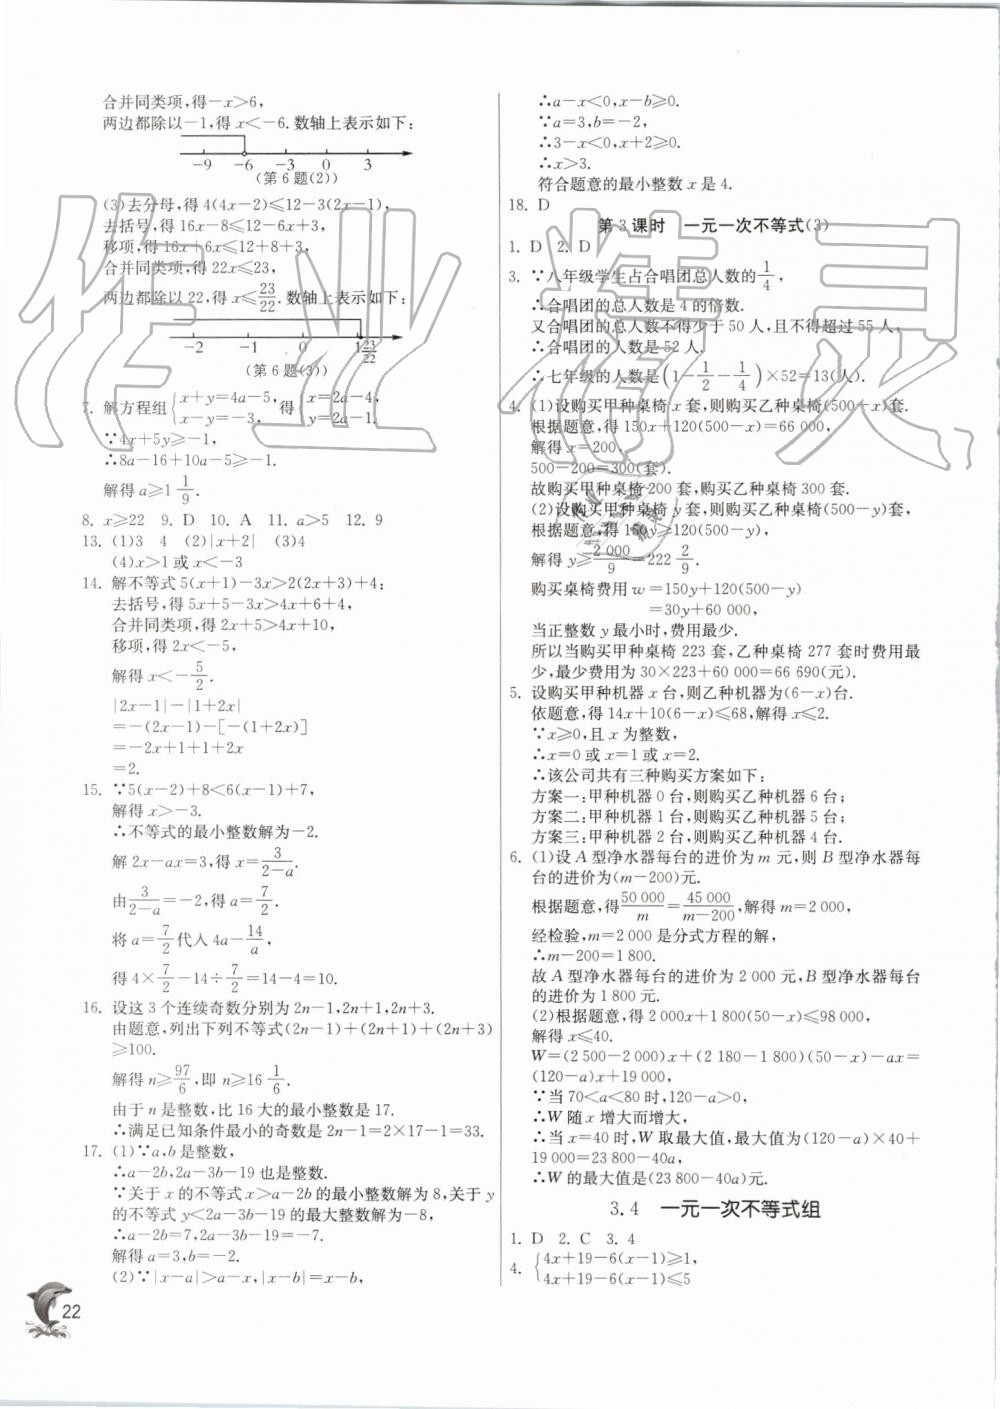 合并同类项,得-x>6,
两边都除以-1,得x<-6.数轴上表示如下:
-9 -6 -3 0 3
(第6题(2))
(3)去分母,得4(4x-2)≤12-3(2x-1),
去括号,得16x-8≤12-6x+3,
移项,得16x+6x≤12+8+3,
合并同类项,得22x≤23,
两边都除以22,得x≤23/22.数轴上表示如下:
-2 -1 0 1 23/22
(第6题(3))
7. 解方程组{x+y=4a-5, x-y=-3, 得{x=2a-4, y=2a-1.
∵4x+5y≥-1,
∴8a-16+10a-5≥-1.
解得a≥1 1/9.
8. x≥22 9. D 10. A 11. a>5 12. 9
13. (1)3 4 (2)|x+2| (3)4
(4)x>1或x<-3
14. 解不等式5(x+1)-3x>2(2x+3)+4:
去括号,得5x+5-3x>4x+6+4,
合并同类项,得2x+5>4x+10,
移项,得2x<-5,
解得x<-5/2.
|2x-1|-|1+2x|
=-(2x-1)-[-(1+2x)]
=-2x+1+1+2x
=2.
15. ∵5(x-2)+8<6(x-1)+7,
解得x>-3.
∴不等式的最小整数解为-2.
解2x-ax=3,得x=3/(2-a).
由3/(2-a)=-2,得a=7/2.
将a=7/2代入4a-14/a,
得4×7/2-14÷7/2=14-4=10.
16. 设这3个连续奇数分别为2n-1,2n+1,2n+3.
由题意,列出下列不等式(2n-1)+(2n+1)+(2n+3)
≥100.
解得n≥97/6,即n≥16 1/6.
由于n是整数,比16大的最小整数是17.
∴满足已知条件最小的奇数是2n-1=2×17-1=33.
17. (1)∵a,b是整数,
∴a-2b,2a-3b-19也是整数.
∵关于x的不等式x>a-2b的最小整数解为8,关于y
的不等式y<2a-3b-19的最大整数解为-8,
∴a-2b=7,2a-3b-19=-7.
解得a=3,b=-2.
(2)∵|x-a|>a-x,|x-b|=x-b,
22
∴a-x<0,x-b≥0.
∵a=3,b=-2,
∴3-x<0,x+2≥0.
∴x>3.
符合题意的最小整数x是4.
18. D
第3课时 一元一次不等式(3)
1. D 2. D
3. ∵八年级学生占合唱团总人数的1/4,
∴合唱团的总人数是4的倍数.
又合唱团的总人数不得少于50人,且不得超过55人,
∴合唱团的人数是52人.
∴七年级的人数是(1-1/2-1/4)×52=13(人).
4. (1)设购买甲种桌椅x套,则购买乙种桌椅(500-x)套.
根据题意,得150x+120(500-x)=66 000,
解得x=200.
500-200=300(套).
故购买甲种桌椅200套,购买乙种桌椅300套.
(2)设购买甲种桌椅y套,则购买乙种桌椅(500-y)套,
根据题意,得150y≥120(500-y),
解得y≥2 000/9=222 2/9.
购买桌椅费用w=150y+120(500-y)
=30y+60 000,
当正整数y最小时,费用最少.
所以当购买甲种桌椅223套,乙种桌椅277套时费用最
少,最少费用为30×223+60 000=66 690(元).
5. 设购买甲种机器x台,则乙种机器(6-x)台.
依题意,得14x+10(6-x)≤68,解得x≤2.
∵x≥0,且x为整数,
∴x=0或x=1或x=2.
∴该公司共有三种购买方案如下:
方案一:甲种机器0台,则购买乙种机器6台;
方案二:甲种机器1台,则购买乙种机器5台;
方案三:甲种机器2台,则购买乙种机器4台.
6. (1)设A型净水器每台的进价为m元,则B型净水器每
台的进价为(m-200)元.
根据题意,得50 000/m=45 000/(m-200),解得m=2 000,
经检验,m=2 000是分式方程的解,
∴m-200=1 800.
故A型净水器每台的进价为2 000元,B型净水器每台
的进价为1 800元.
(2)根据题意,得2 000x+1 800(50-x)≤98 000,
解得x≤40.
W=(2 500-2 000)x+(2 180-1 800)(50-x)-ax=
(120-a)x+19 000,
∵当70<a<80时,120-a>0,
∴W随x增大而增大,
∴当x=40时,W取最大值,最大值为(120-a)×40+
19 000=23 800-40a,
∴W的最大值是(23 800-40a)元.
3.4 一元一次不等式组
1. D 2. C 3. 4
4. {4x+19-6(x-1)≥1, 4x+19-6(x-1)≤5
作业精灵